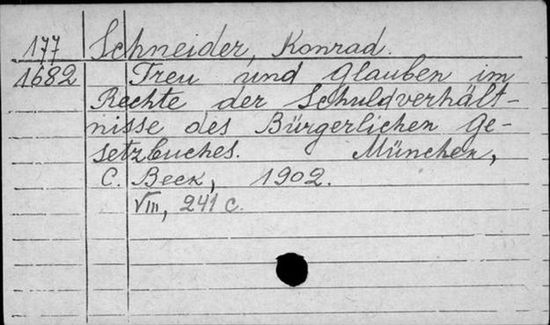 177 Schneider, Konrad.
1682 Treu und Glauben im
Rechte der Schuldverhält-
nisse des Bürgerlichen Ge-
setzbuches. München,
C. Beck, 1902.
VIII, 241 c.